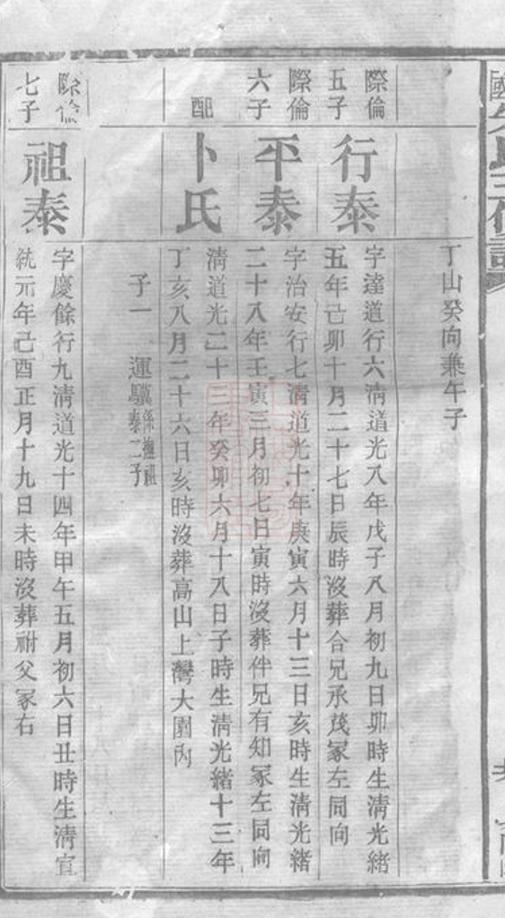 丁山癸向兼午子
際倫
五子
行泰
字達道行六清道光八年戊子八月初九日卯時生清光緒
五年己卯十月二十七日辰時沒葬合兄承茂冢左同向
際倫
六子
平泰
字治安行七清道光十年庚寅六月十三日亥時生清光緒
二十八年壬寅三月初七日寅時沒葬伴兄有知冢左同向
配
卜氏
清道光二十三年癸卯六月十八日子時生清光緒十三年
丁亥八月二十六日亥時沒葬高山上灣大園內
子一　運驥係撫祖泰二子
際倫
七子
祖泰
字慶餘行九清道光十四年甲午五月初六日丑時生清宣
統元年己酉正月十九日未時沒葬祔父冢右